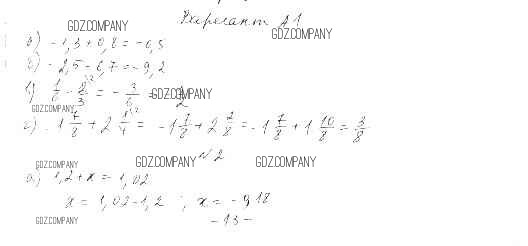 GDZ.COMPANY
Вариант А1
GDZ.COMPANY
а) -1,3 + 0,8 = -0,5
б) -2,5 - 6,7 = -9,2
в) 1/6 - 2/3 = - 3/6 =
GDZ.COMPANY
GDZ.COMPANY
г) -1 7/8 + 2 1/4 = -1 7/8 + 2 2/8 = -1 7/8 + 1 10/8 = 3/8
№2
GDZ.COMPANY
GDZ.COMPANY
GDZ.COMPANY
а) 1,2 + x = 1,02
x = 1,02 - 1,2 ; x = -0,18
GDZ.COMPANY
- 13 -